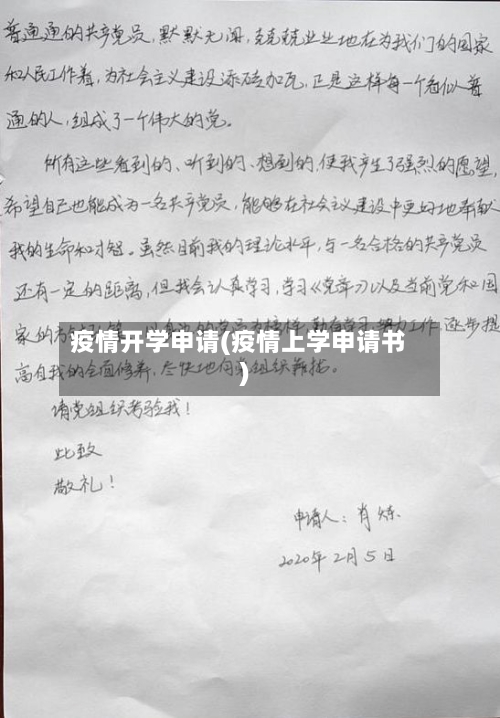 普通通的共产党员,默默无闻,兢兢业业地在为我们的国家
和人民工作着,为社会主义建设添砖加瓦,正是这样每一个看似普
通的人,组成了一个伟大的党。
所有这些看到的、听到的、想到的,使我产生了强烈的愿望,
希望自己也能成为一名共产党员,能够在社会主义建设中更好地奉献
我的生命和才智。虽然目前我的理论水平,与一名合格的共产党员
还有一定的距离,但我会认真学习,学习《党章》以及当前党和国
家的 工作,逐步提
疫情开学申请(疫情上学申请书
)
高自我的全面修养,尽快地向党组织靠拢。
请党组织考验我!
此致
敬礼!
申请人:肖炼
2020年2月5日